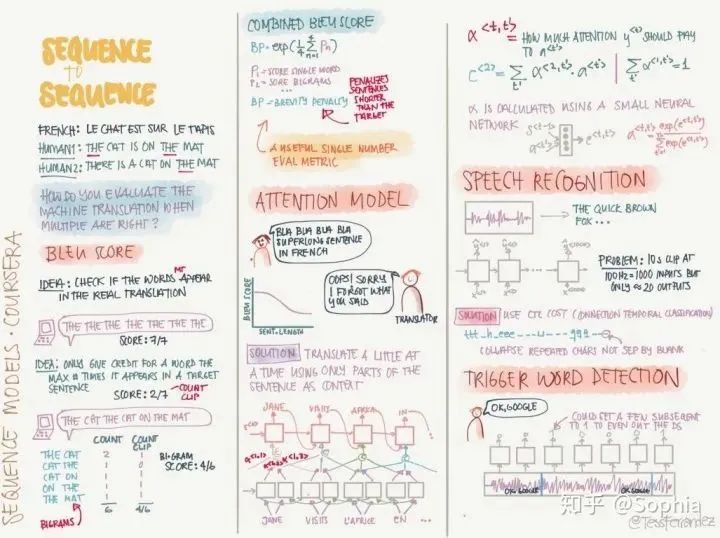 SEQUENCE
to
SEQUENCE
FRENCH: LE CHAT EST SUR LE TAPIS
HUMAN1: THE CAT IS ON THE MAT
HUMAN2: THERE IS A CAT ON THE MAT
HOW DO YOU EVALUATE THE
MACHINE TRANSLATION WHEN
MULTIPLE ARE RIGHT?
BLEU SCORE
IDEA: CHECK IF THE WORDS MT APPEAR
IN THE REAL TRANSLATION
THE THE THE THE THE THE THE
SCORE: 7/7
IDEA: ONLY GIVE CREDIT FOR A WORD THE
MAX # TIMES IT APPEARS IN A TARGET
SENTENCE
SCORE: 2/7
COUNT
CLIP
THE CAT THE CAT ON THE MAT
COUNT
COUNT
CLIP
THE CAT 2 1
CAT THE 1 0
CAT ON 1 1
ON THE 1 1
THE MAT 1 1
6 4/6
BIGRAM
SCORE: 4/6
BIGRAMS
SEQUENCE MODELS · COURSERA
COMBINED BLEU SCORE
BP · exp(1/4 Σ Pn)
n=1
4
P1 = SCORE SINGLE WORD
P2 = SCORE BIGRAMS
...
BP = BREVITY PENALTY
PENALIZES
SENTENCES
SHORTER
THAN THE
TARGET
A USEFUL SINGLE NUMBER
EVAL METRIC
ATTENTION MODEL
BLA BLA BLA BLA
SUPERLONG SENTENCE
IN FRENCH
BLEU SCORE
SENT. LENGTH
OOPS! SORRY
I FORGOT WHAT
YOU SAID
TRANSLATOR
SOLUTION TRANSLATE A LITTLE AT
A TIME USING ONLY PARTS OF THE
SENTENCE AS CONTEXT
JANE VISITS AFRICA IN
JANE VISITS L'AFRICE EN
α<t,t'> = HOW MUCH ATTENTION y<t> SHOULD PAY
TO a<t'>
c<2> = Σ α<2,t'> · a<t'> | Σ α<1,t'> = 1
t' t'
α IS CALCULATED USING A SMALL NEURAL
NETWORK
s<t-1>
a<t'>
e<t,t'>
α<t,t'> = exp(e<t,t'>)
Σ exp(e<t,t'>)
SPEECH RECOGNITION
THE QUICK BROWN
FOX...
PROBLEM: 10s CLIP AT
100HZ = 1000 INPUTS BUT
ONLY ≈ 20 OUTPUTS
SOLUTION USE CTC COST (CONNECTION TEMPORAL CLASSIFICATION)
COLLAPSE REPEATED CHARS NOT SEP BY BLANK
TRIGGER WORD DETECTION
OK, GOOGLE
COULD SET A FEW SUBSEQUENT
TO 1 TO EVEN OUT THE DS
OK, GOOGLE OK GOOGLE
知乎 @Sophia
@TessFerrandez